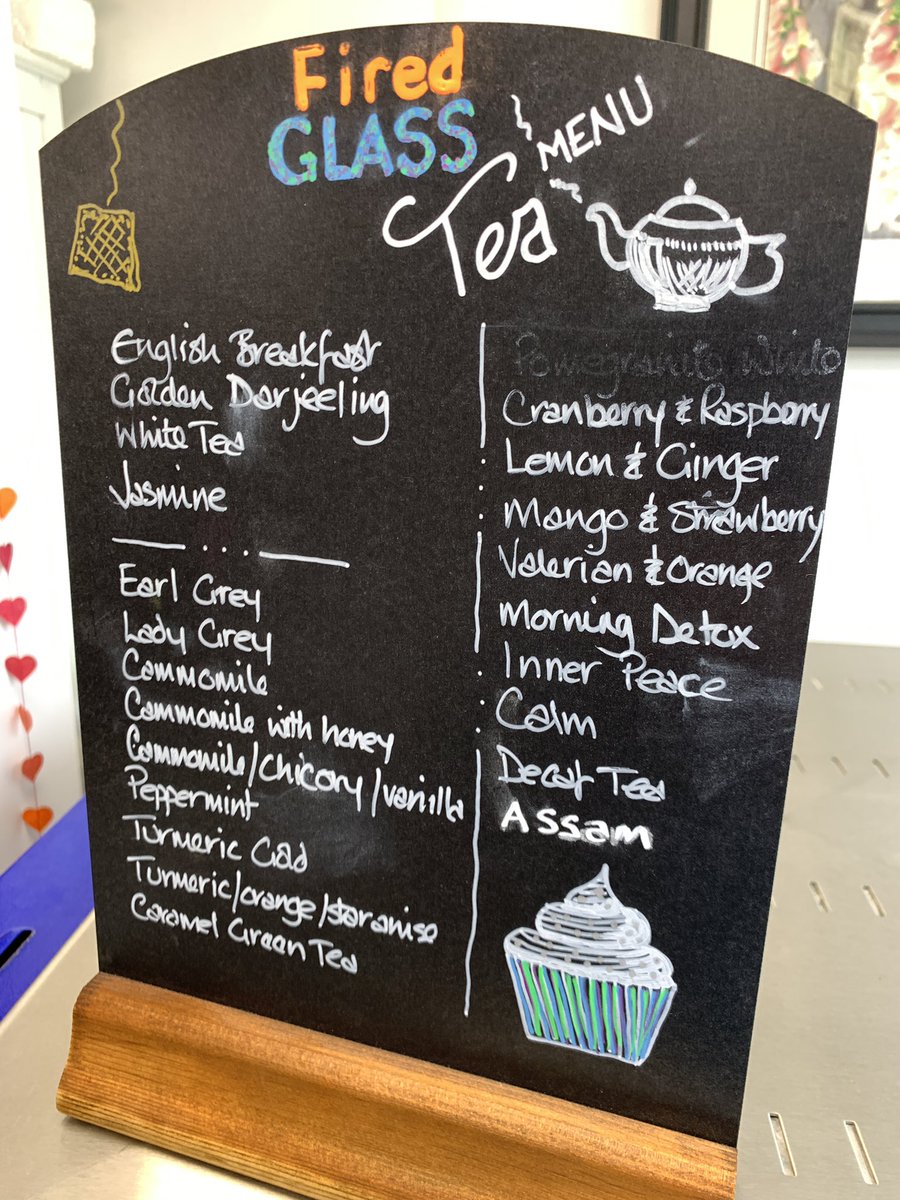 Fired
GLASS
MENU
Tea
English Breakfast
Golden Darjeeling
White Tea
Jasmine
Earl Grey
Lady Grey
Cammomile
Cammomile with honey
Cammomile/chicory/vanilla
Peppermint
Turmeric Gold
Turmeric/orange/staranise
Caramel Green Tea
Cranberry & Raspberry
Lemon & Ginger
Mango & Strawberry
Valerian & Orange
Morning Detox
Inner Peace
Calm
Decaf Tea
Assam